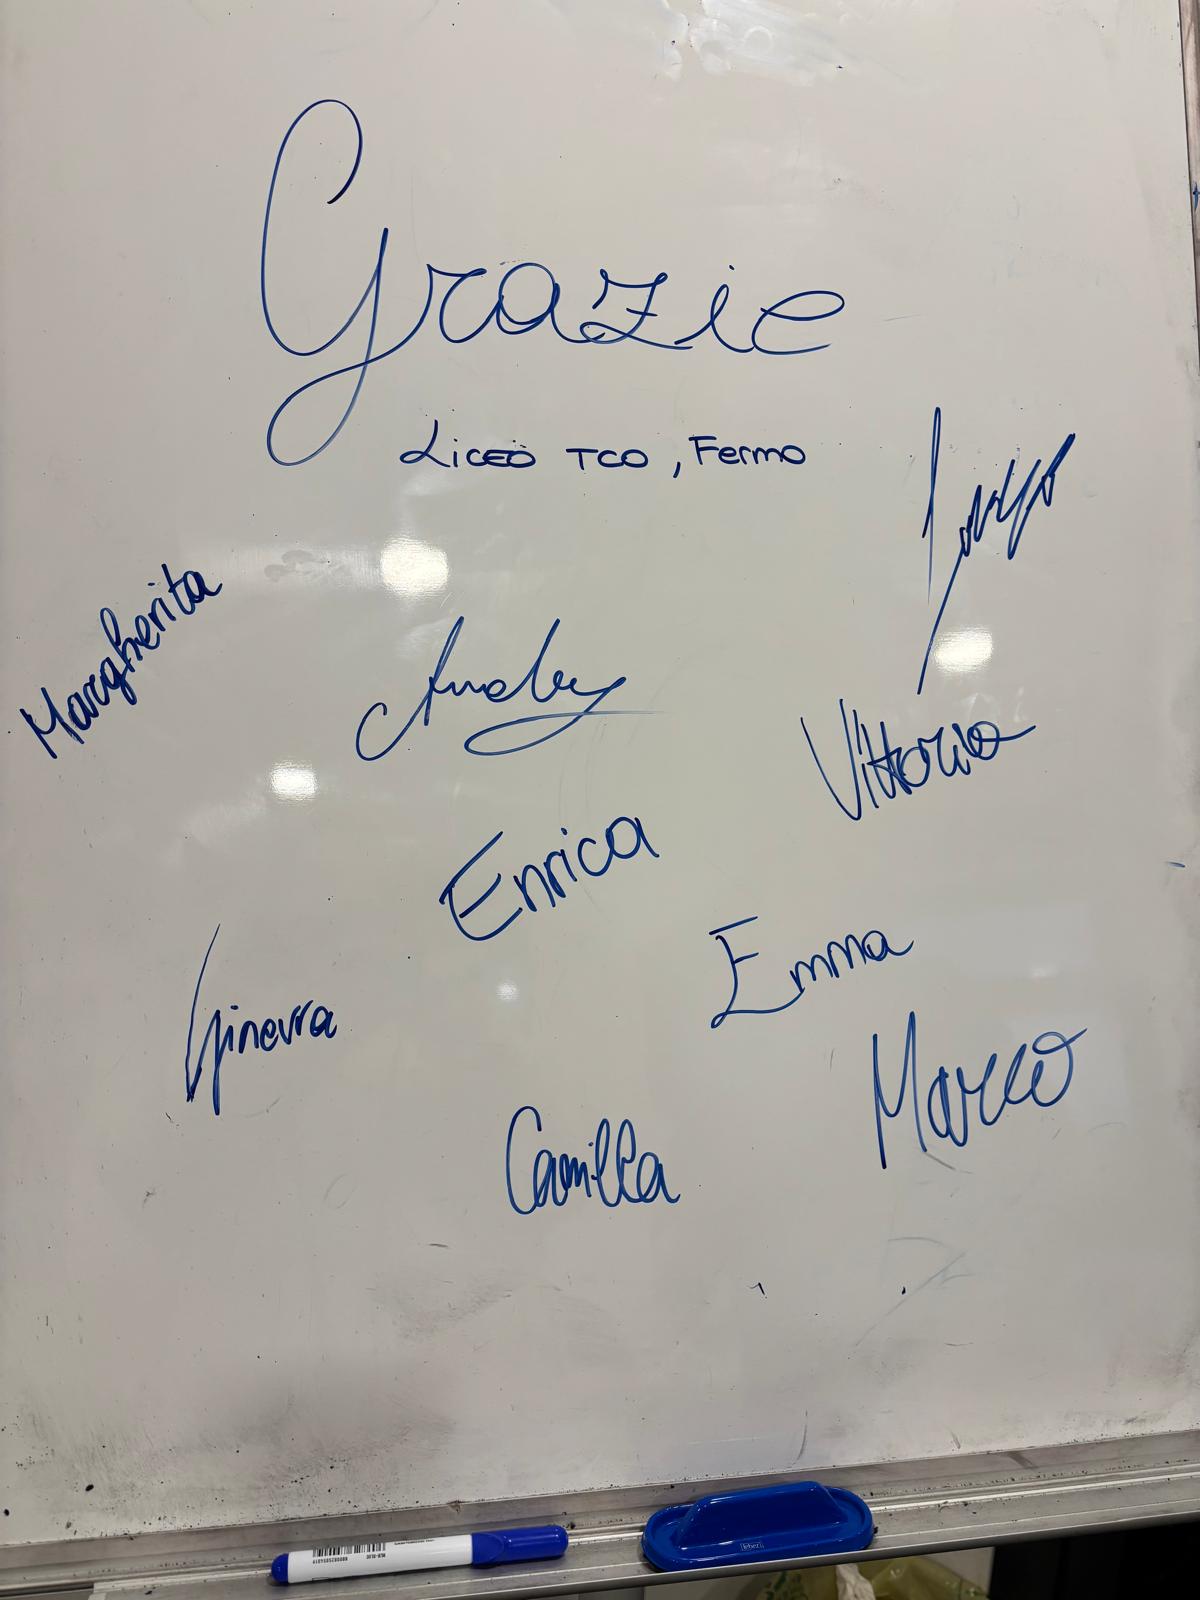 Grazie
Liceo TCO, Fermo
Margherita
Vittoria
Enrica
Emma
Ginevra
Marco
Camilla